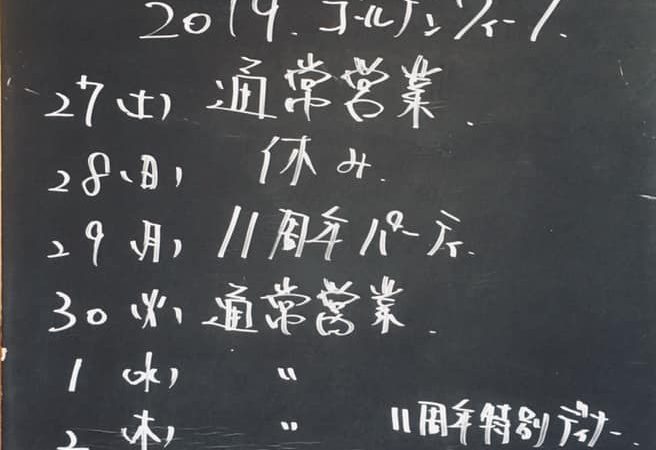 2019. ゴールデンウィーク.
27(土) 通常営業.
28(日) 休み.
29(月) 11周年パーティ.
30(火) 通常営業.
1(水) 〃
2(木) 〃 11周年特別ディナー.